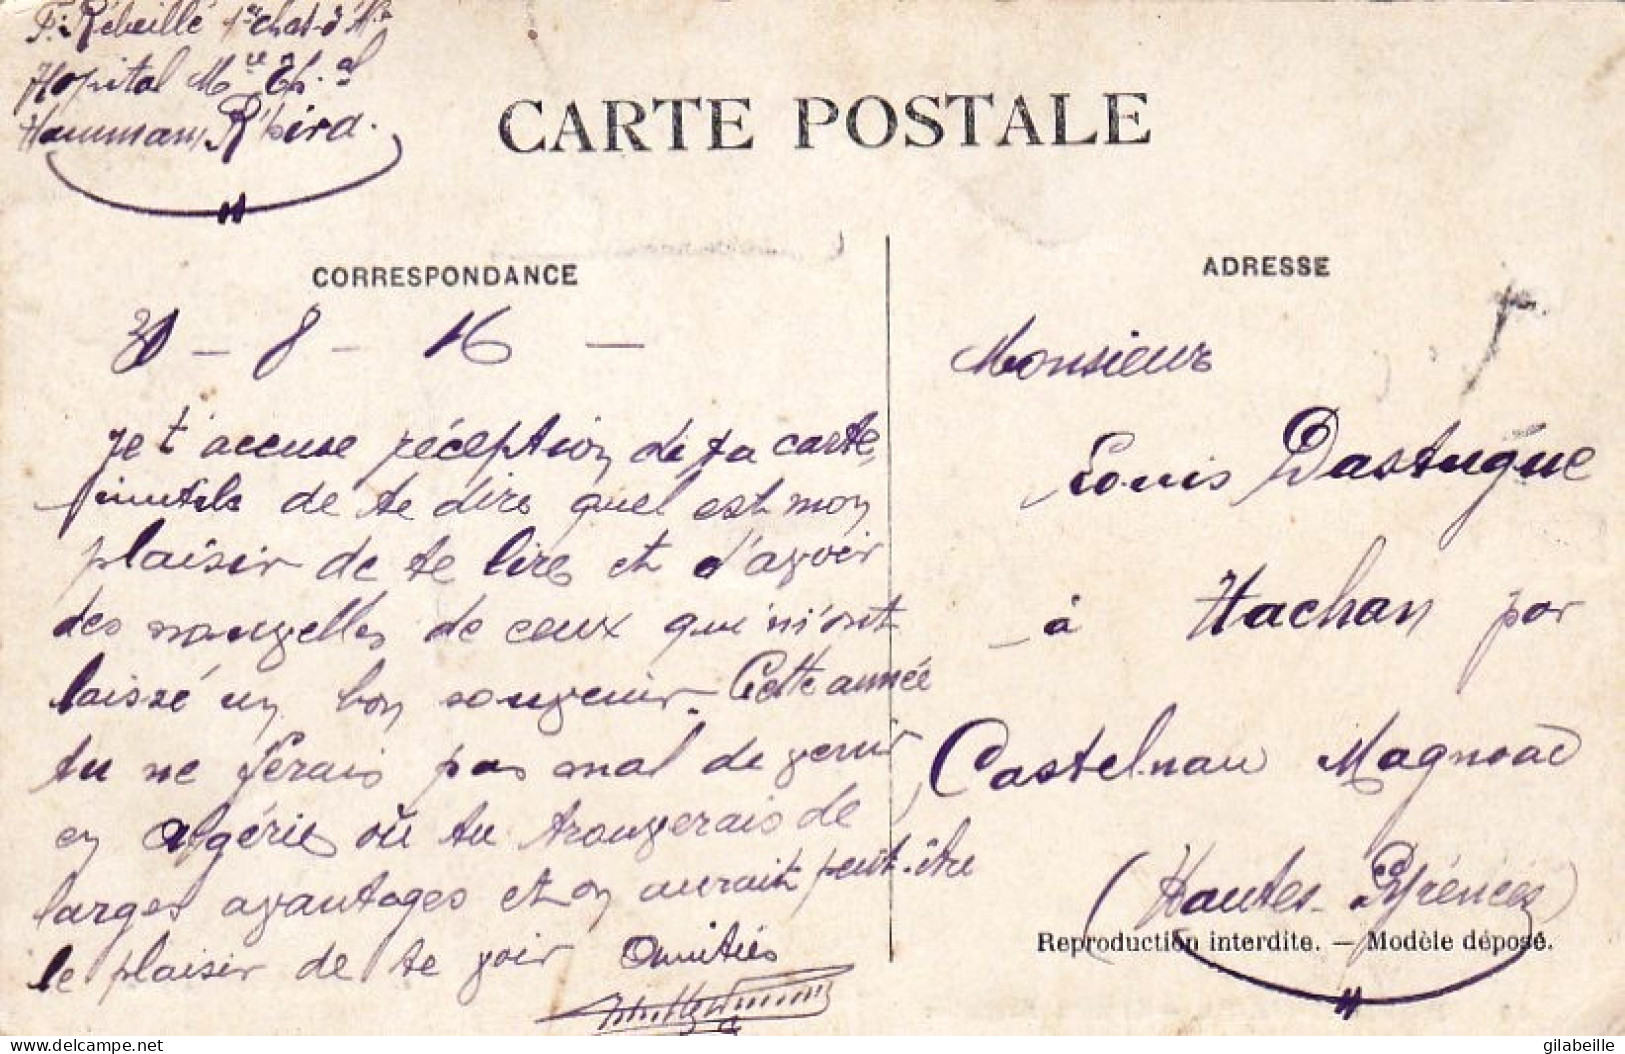 F. Rébeillé 1er chas. d'Af.
Hopital Mre Th.al
Hammam R'hira.
CARTE POSTALE
CORRESPONDANCE
ADRESSE
31 - 8 - 16 -
Je t'accuse réception de ta carte,
inutile de te dire quel est mon
plaisir de te lire et d'avoir
des nouvelles de ceux qui m'ont
laissé un bon souvenir. Cette année
tu ne ferais pas mal de venir
en Algérie où tu trouverais de
larges avantages et on aurait peut-être
le plaisir de te voir Amitiés
Monsieur
Louis Dastugue
à Hachan par
Castelnau Magnoac
(Hautes-Pyrénées)
Reproduction interdite. — Modèle déposé.
delcampe.net
gilabeille